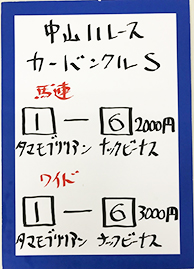 中山11レース
カーバンクルS
馬連
1 ー 6 2000円
タマモブラウンタイ ナックビーナス
ワイド
1 ー 6 3000円
ナックビーナス